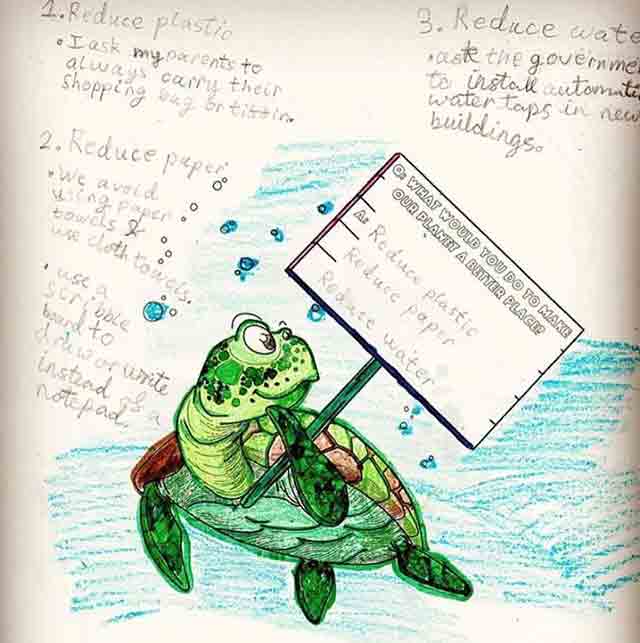 1. Reduce plastic
• I ask my parents to
always carry their
shopping bag or tiffin.
2. Reduce paper
• We avoid
using paper
towels &
use cloth towels.
• use a
scribble
board to
draw or write
instead of a
notepad.
3. Reduce wate
• ask the governme
to install automati
water taps in new
buildings.
Q: WHAT WOULD YOU DO TO MAKE
OUR PLANET A BETTER PLACE?
A: Reduce plastic
Reduce paper
Reduce water